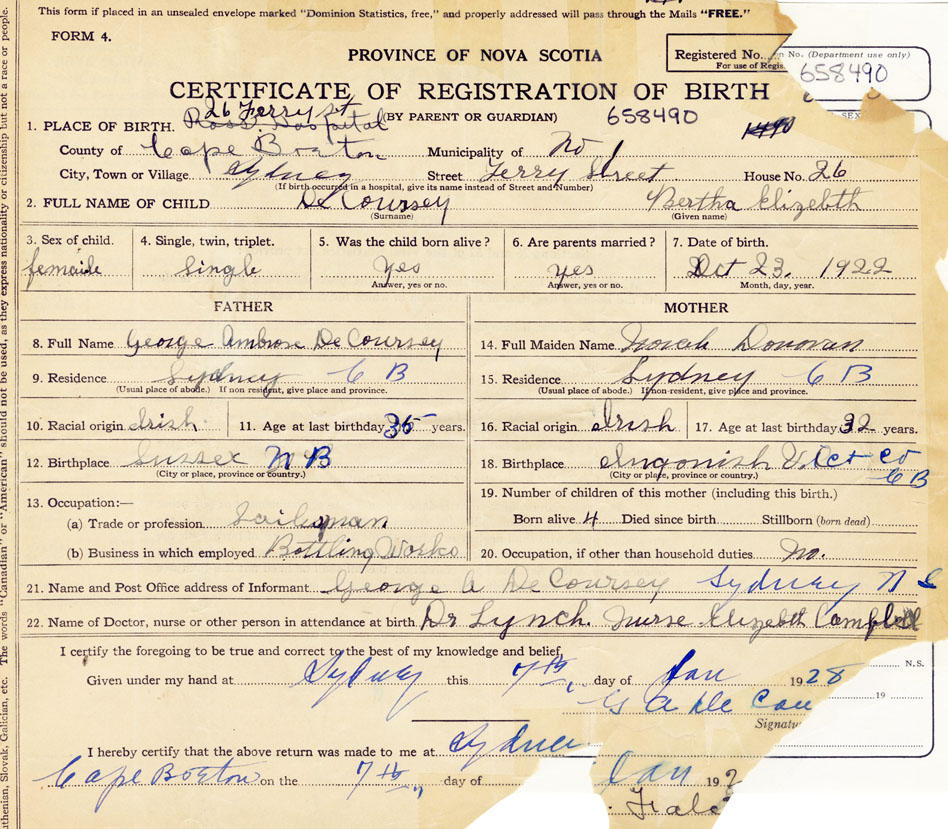 This form if placed in an unsealed envelope marked "Dominion Statistics, free," and properly addressed will pass through the Mails "FREE."
FORM 4.
PROVINCE OF NOVA SCOTIA
Registered No.
For use of Regis
n No. (Department use only)
658490
CERTIFICATE OF REGISTRATION OF BIRTH
26 Ferry st
(BY PARENT OR GUARDIAN)
658490
1. PLACE OF BIRTH. Ross Hospital
1490
SEX
County of Cape Breton Municipality of No
City, Town or Village Sydney Street Ferry Street House No. 26
(If birth occurred in a hospital, give its name instead of Street and Number)
2. FULL NAME OF CHILD DeCoursey Bertha Elizebth
(Surname) (Given name)
3. Sex of child. 4. Single, twin, triplet. 5. Was the child born alive? 6. Are parents married? 7. Date of birth.
female single yes yes Oct 23. 1922
Answer, yes or no. Answer, yes or no. Month, day, year.
FATHER MOTHER
8. Full Name George Ambrose DeCoursey 14. Full Maiden Name Norah Donovan
9. Residence Sydney C B 15. Residence Sydney C B
(Usual place of abode.) If non resident, give place and province. (Usual place of abode.) If non-resident, give place and province.
10. Racial origin Irish 11. Age at last birthday 35 years. 16. Racial origin Irish 17. Age at last birthday 32 years.
12. Birthplace Sussex N B 18. Birthplace Ingonish Vict Co
(City or place, province or country.) (City or place, province or country.) C B
13. Occupation:— 19. Number of children of this mother (including this birth.)
(a) Trade or profession Born alive 4 Died since birth Stillborn (born dead)
(b) Business in which employed Bottling Works 20. Occupation, if other than household duties No.
21. Name and Post Office address of Informant George A DeCoursey Sydney N S
22. Name of Doctor, nurse or other person in attendance at birth Dr Lynch. Nurse Elizebth Campbell
I certify the foregoing to be true and correct to the best of my knowledge and belief,
N.S.
Given under my hand at Sydney this 7th day of Jan 1928
19
G A De Cou
Signatu
I hereby certify that the above return was made to me at Sydne
Cape Breton on the 7th day of Jan 192
The words "Canadian" or "American" should not be used, as they express nationality or citizenship but not a race or people.
uthenian, Slovak, Galician, etc.